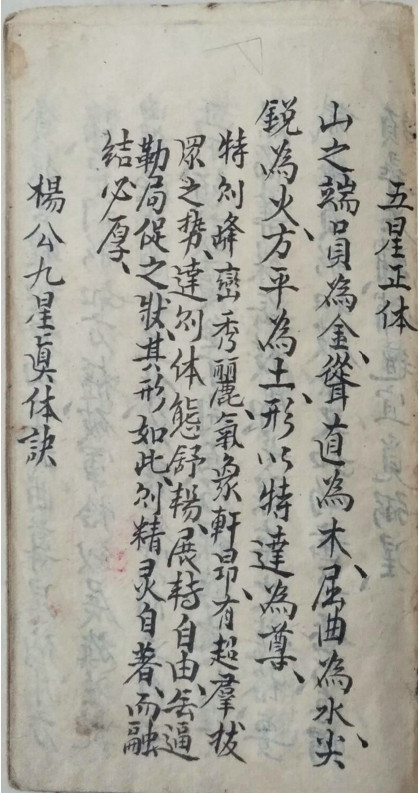 五星正体
山之端員為金、聳直為木、屈曲為水、尖
鋭為火、方平為土、形以特達為尊、
特則峰巒秀麗、氣象軒昂、有超羣拔
眾之勢、達則体態舒暢、展轉自由、無逼
勒局促之狀、其形如此、則精灵自著、而融
結必厚、
楊公九星真体訣